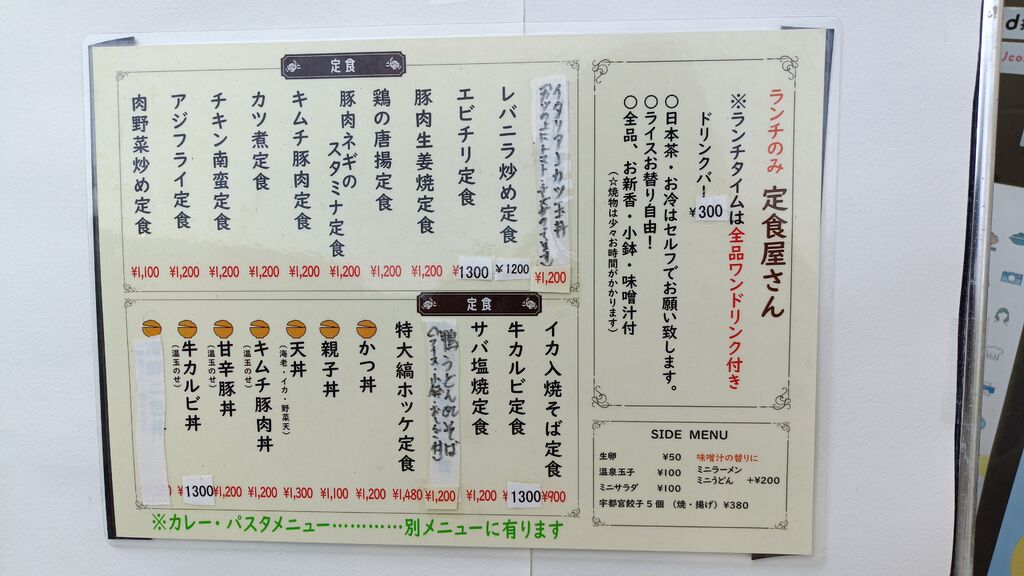 ランチのみ 定食屋さん
※ランチタイムは全品ワンドリンク付き
ドリンクバー ¥300
○日本茶・お冷はセルフでお願い致します。
○ライスお替り自由！
○全品、お新香・小鉢・味噌汁付
(☆焼物は少々お時間がかかります)
定食
¥1,200
レバニラ炒め定食 ¥1200
エビチリ定食 ¥1300
豚肉生姜焼定食 ¥1,200
鶏の唐揚定食 ¥1,200
豚肉ネギの
スタミナ定食 ¥1,200
キムチ豚肉定食 ¥1,200
カツ煮定食 ¥1,200
チキン南蛮定食 ¥1,200
アジフライ定食 ¥1,200
肉野菜炒め定食 ¥1,100
定食
イカ入焼そば定食 ¥900
牛カルビ定食 1300
サバ塩焼定食 ¥1,200
鴨うどんorそば
¥1,200
特大縞ホッケ定食 ¥1,480
かつ丼 ¥1,200
親子丼 ¥1,100
天丼
(海老・イカ・野菜天) ¥1,300
キムチ豚肉丼
(温玉のせ) ¥1,200
甘辛豚丼
(温玉のせ) ¥1,200
牛カルビ丼
(温玉のせ) 1300
※カレー・パスタメニュー…………別メニューに有ります
SIDE MENU
生卵 ¥50
温泉玉子 ¥100
ミニサラダ ¥100
宇都宮餃子5個 (焼・揚げ) ¥380
味噌汁の替りに
ミニラーメン
ミニうどん +¥200